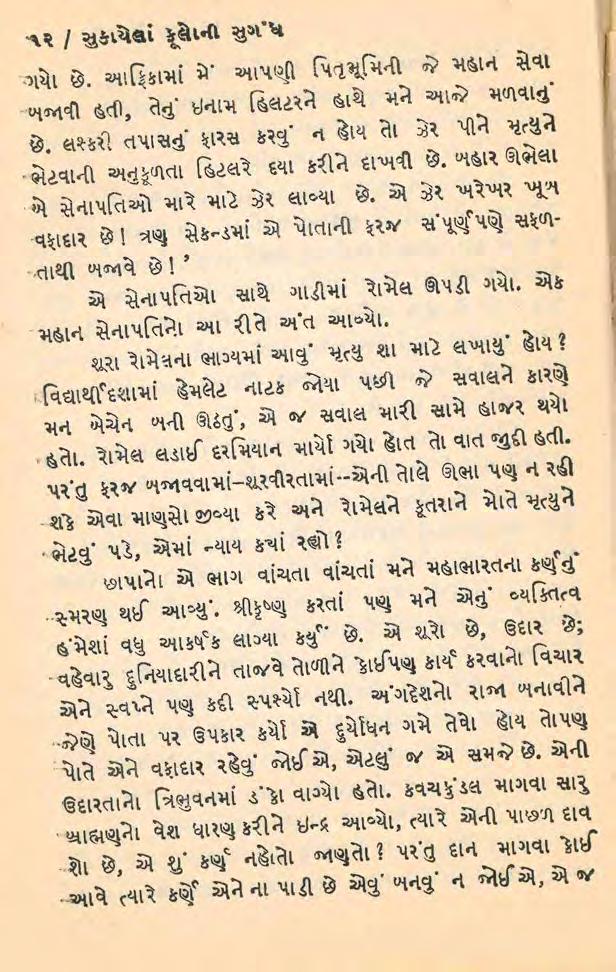 ૧૨ / સુકાયેલાં ફૂલોની સુગંધ
ગયો છે. આફ્રિકામાં મેં આપણી પિતૃભૂમિની જે મહાન સેવા
બજાવી હતી, તેનું ઇનામ હિલટરને હાથે મને આજે મળવાનું
છે. લશ્કરી તપાસનું ફારસ કરવું ન હોય તો ઝેર પીને મૃત્યુને
ભેટવાની અનુકૂળતા હિટલરે દયા કરીને દાખવી છે. બહાર ઊભેલા
એ સેનાપતિઓ મારે માટે ઝેર લાવ્યા છે. એ ઝેર ખરેખર ખૂબ
વફાદાર છે! ત્રણ સેકન્ડમાં એ પોતાની ફરજ સંપૂર્ણપણે સફળ-
તાથી બજાવે છે!’
એ સેનાપતિઓ સાથે ગાડીમાં રોમેલ ઊપડી ગયો. એક
મહાન સેનાપતિનો આ રીતે અંત આવ્યો.
શૂરા રોમેલના ભાગ્યમાં આવું મૃત્યુ શા માટે લખાયું હોય?
વિદ્યાર્થીદશામાં હેમલેટ નાટક જોયા પછી જે સવાલને કારણે
મન બેચેન બની ઊઠતું, એ જ સવાલ મારી સામે હાજર થયો
હતો. રોમેલ લડાઈ દરમિયાન માર્યો ગયો હોત તો વાત જુદી હતી.
પરંતુ ફરજ બજાવવામાં-શૂરવીરતામાં--એની તોલે ઊભા પણ ન રહી
શકે એવા માણસો જીવ્યા કરે અને રોમેલને કૂતરાને મોતે મૃત્યુને
ભેટવું પડે, એમાં ન્યાય કયાં રહ્યો?
છાપાનો એ ભાગ વાંચતા વાંચતાં મને મહાભારતના કર્ણનું
સ્મરણ થઈ આવ્યું. શ્રીકૃષ્ણ કરતાં પણ મને એનું વ્યક્તિત્વ
હંમેશાં વધુ આકર્ષક લાગ્યા કર્યું છે. એ શૂરો છે, ઉદાર છે;
વહેવારુ દુનિયાદારીને તાજવે તોળીને કોઈપણ કાર્ય કરવાનો વિચાર
એને સ્વપ્ને પણ કદી સ્પર્શ્યો નથી. અંગદેશનો રાજા બનાવીને
જેણે પોતા પર ઉપકાર કર્યો એ દુર્યોધન ગમે તેવો હોય તોપણ
પોતે એને વફાદાર રહેવું જોઈએ, એટલું જ એ સમજે છે. એની
ઉદારતાનો ત્રિભુવનમાં ડંકો વાગ્યો હતો. કવચકુંડલ માગવા સારુ
બ્રાહ્મણનો વેશ ધારણ કરીને ઇન્દ્ર આવ્યો, ત્યારે એની પાછળ દાવ
શો છે, એ શું કર્ણ નહોતો જાણતો? પરંતુ દાન માગવા કોઈ
આવે ત્યારે કર્ણે એને ના પાડી છે એવું બનવું ન જોઈએ, એ જ